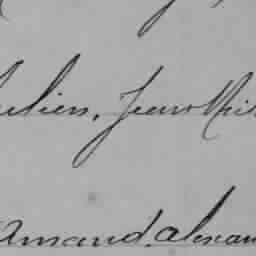 Julien, Jean Mic
Amand, Alexan